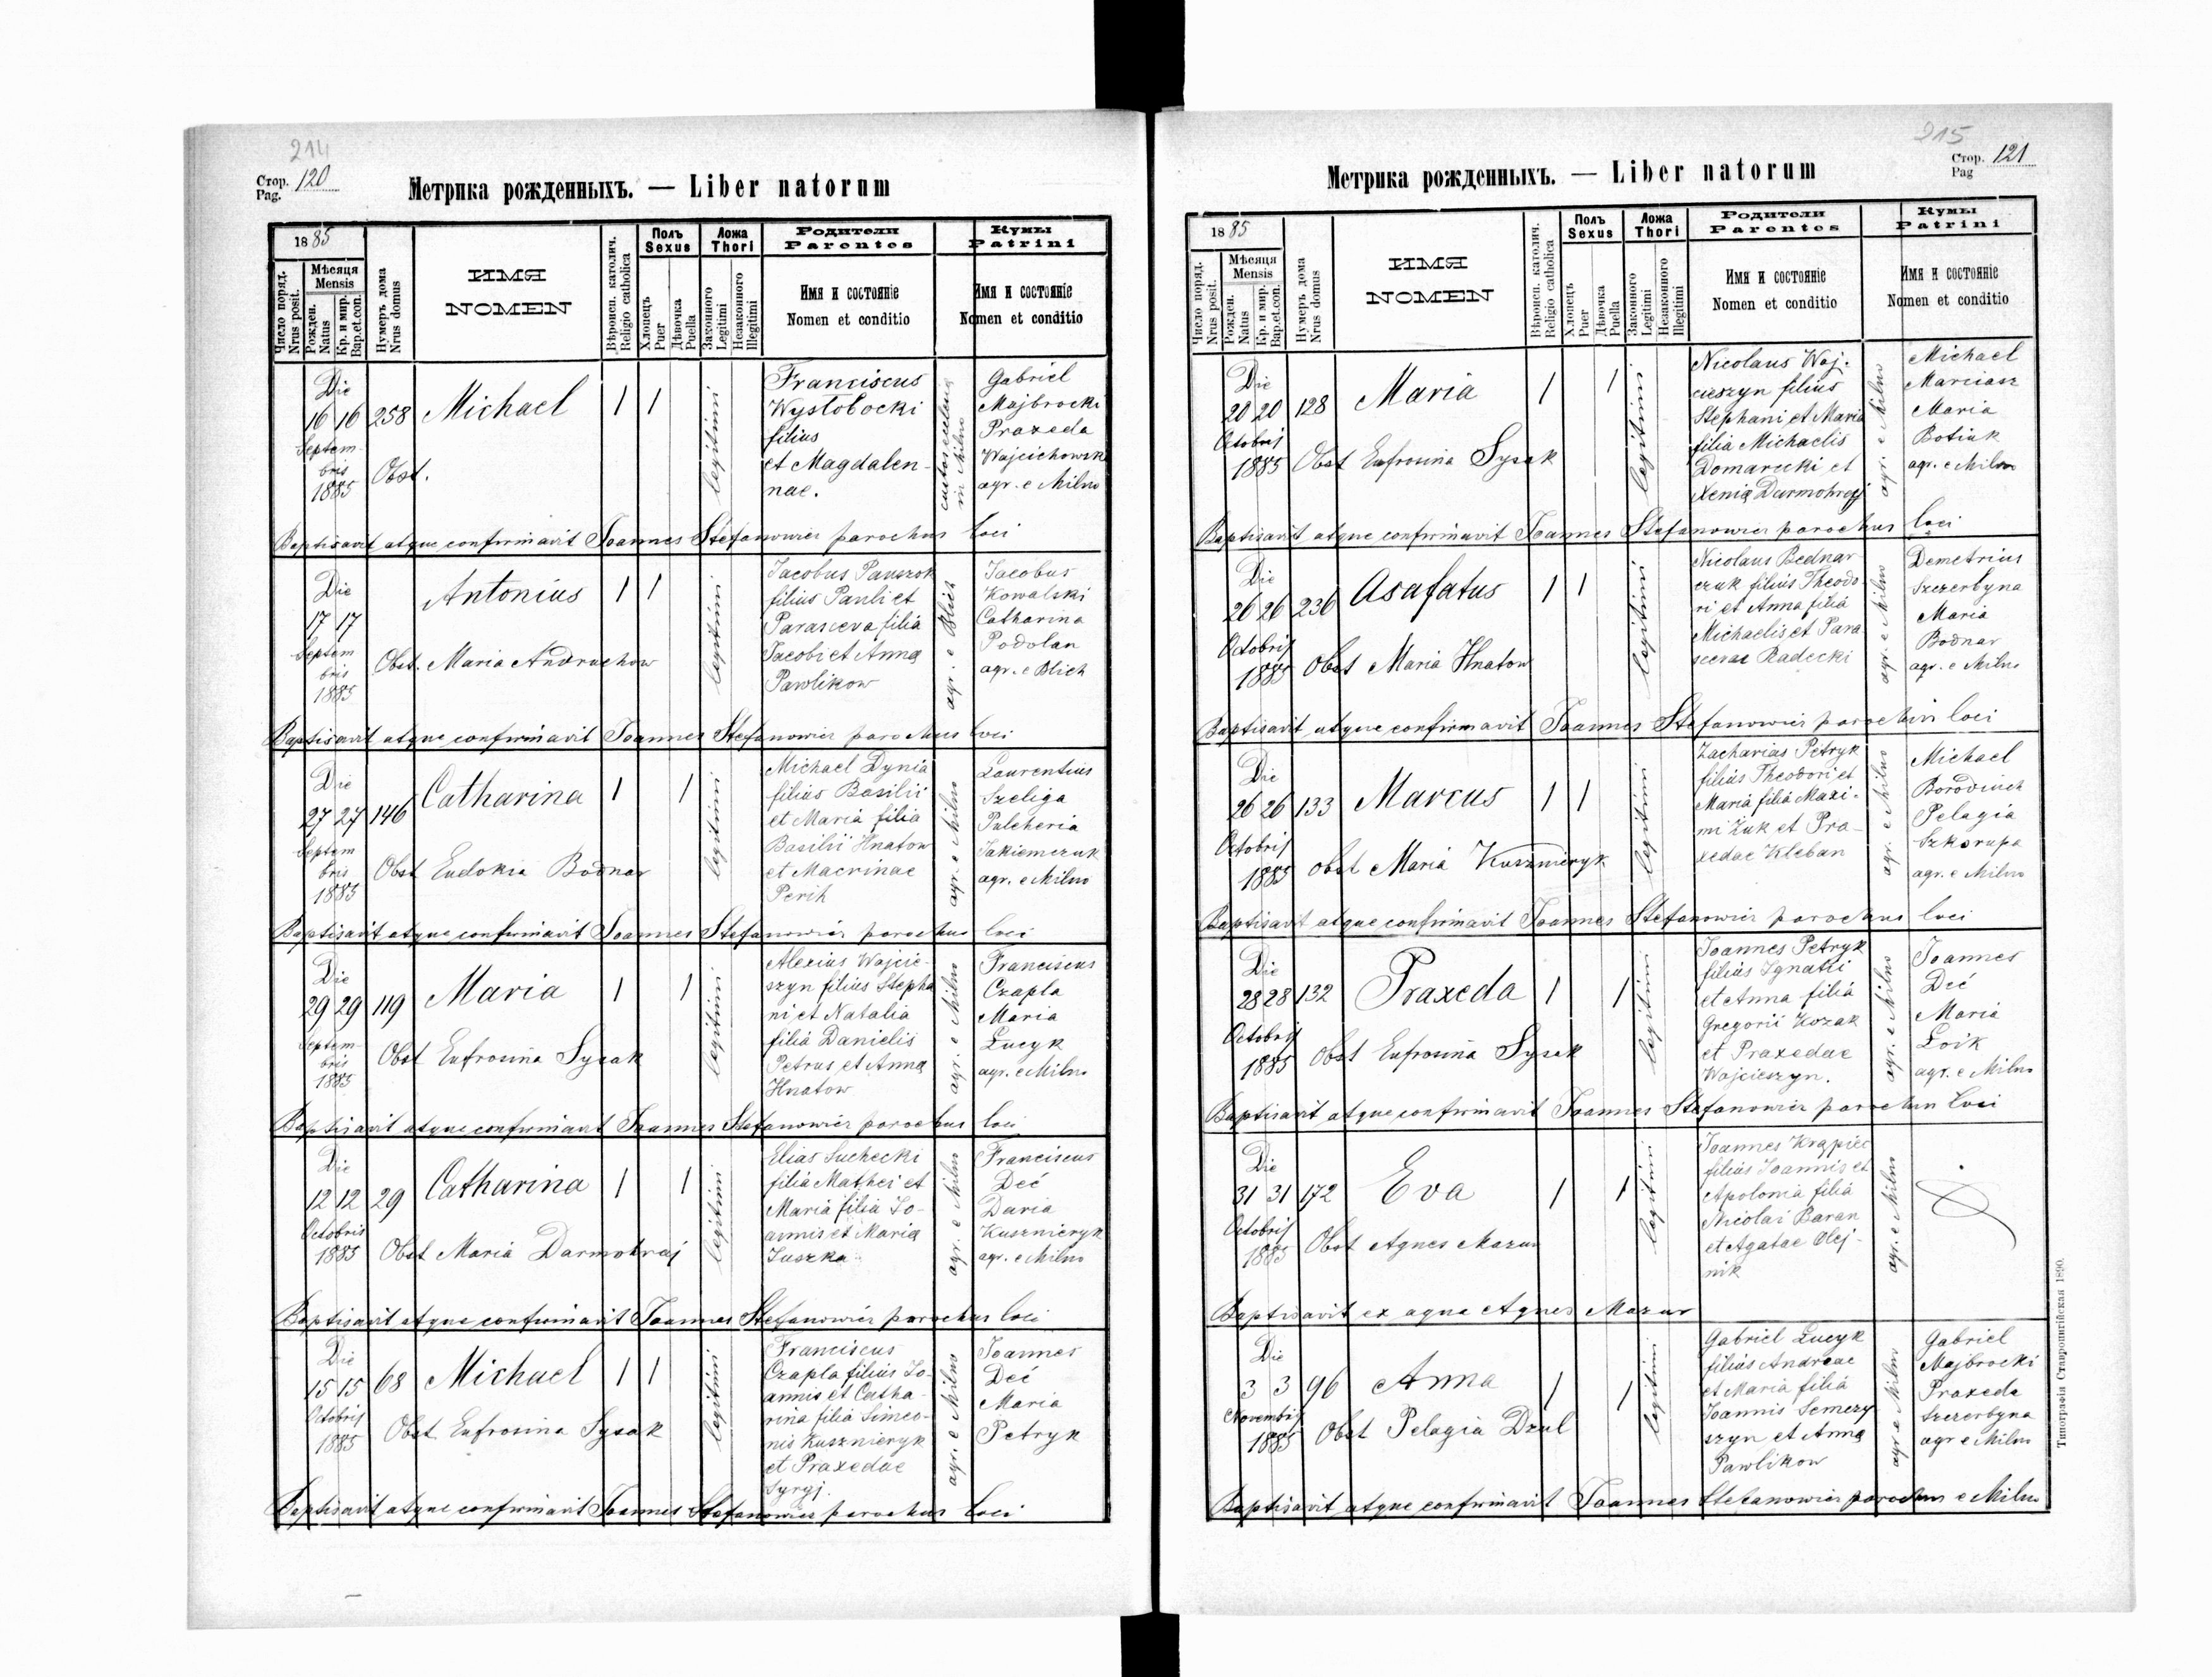 214
Стор. 120
Pag.
Метрика рожденныхъ. — Liber natorum
1885
Число поряд.
Nrus posit.
Мѣсяця
Mensis
Рожден.
Natus
Кр. и мир.
Bap.et.con.
Нумеръ дома
Nrus domus
ИМЯ
NOMEN
Вѣроисп. католич.
Religio catholica
Полъ
Sexus
Хлопецъ
Puer
Дѣвочка
Puella
Ложа
Thori
Законного
Legitimi
Незаконного
Illegitimi
Родители
Parentes
Имя и состояніе
Nomen et conditio
Кумы
Patrini
Имя и состояніе
Nomen et conditio
Die
16 16 258 Michael 1 1
Septem-
bris
1885
Obst.
legitimi
Franciscus
Wystobocki
filius
et Magdalen-
nae.
in Milno
Gabriel
Majbrocki
Praxeda
Wojcichowsk
agr. e Milno
Baptisavit atque confirmavit Joannes Stefanowicz parochus loci
Die
17 17 Antonius 1 1
Septem
bris
1885
Obst. Maria Andruchow
legitimi
Jacobus Pauszok
filius Pauli et
Parasceva filia
Jacobi et Anna
Pawlikow
agr. e Blich
Jacobus
Kowalski
Catharina
Podolan
agr. e Blich
Baptisavit atque confirmavit Joannes Stefanowicz parochus loci
Die
27 27 146 Catharina 1 1
Septem
bris
1885
Obst Eudokia Bodnar
legitimi
Michael Dynia
filius Basilii
et Maria filia
Basilii Hnatow
et Macrinae
Perih
agr. e Milno
Laurentius
Szeliga
Pulcheria
Jakiemczuk
agr. e Milno
Baptisavit atque confirmavit Joannes Stefanowicz parochus loci
Die
29 29 119 Maria 1 1
Septem-
bris
1885
Obst Eufrosina Sysak
legitimi
Alexius Wojcie-
szyn filius Stepha
ni et Natalia
filia Danielis
Petrus et Anna
Hnatow
agr. e Milno
Franciscus
Czapla
Maria
Łucyk
agr. e Milno
Baptisavit atque confirmavit Joannes Stefanowicz parochus loci
Die
12 12 29 Catharina 1 1
Octobris
1885
Obst Maria Darmohraj
legitimi
Elias Suchecki
filia Mathei et
Maria filia Jo-
annis et Maria
Juszka
agr. e Milno
Franciscus
Deć
Daria
Kusznieryk
agr. e Milno
Baptisavit atque confirmavit Joannes Stefanowicz parochus loci
Die
15 15 68 Michael 1 1
Octobris
1885
Obst Eufrosina Sysak
legitimi
Franciscus
Czapla filius Jo-
annis et Catha-
rina filia Simeo-
nis Kusznieryk
et Praxedae
Syrgj.
agr. e Milno
Joannes
Deć
Maria
Petryk
Baptisavit atque confirmavit Joannes Stefanowicz parochus loci
215
Стор. 121
Pag
Метрика рожденныхъ. — Liber natorum
1885
Число поряд.
Nrus posit.
Мѣсяця
Mensis
Рожден.
Natus
Кр. и мир.
Bap.et.con.
Нумеръ дома
Nrus domus
ИМЯ
NOMEN
Вѣроисп. католич.
Religio catholica
Полъ
Sexus
Хлопецъ
Puer
Дѣвочка
Puella
Ложа
Thori
Законного
Legitimi
Незаконного
Illegitimi
Родители
Parentes
Имя и состояніе
Nomen et conditio
Кумы
Patrini
Имя и состояніе
Nomen et conditio
Die
20 20 128 Maria 1 1
Octobris
1885
Obst Eufrosina Sysak
legitimi
Nicolaus Woj-
cieszyn filius
Stephani et Maria
filia Michaelis
Domarucki et
Xenia Darmohraj
agr. e Milno
Michael
Marciasz
Maria
Botiuk
agr. e Milno
Baptisavit atque confirmavit Joannes Stefanowicz parochus loci
Die
26 26 236 Asafatus 1 1
Octobris
1885
Obst Maria Hnatow
legitimi
Nicolaus Bednar
czuk filius Theodo
ri et Anna filia
Michaelis et Para
scevae Radecki
agr. e Milno
Demetrius
Szczerbyna
Maria
Bodnar
agr. e Milno
Baptisavit atque confirmavit Joannes Stefanowicz parochus loci
Die
26 26 133 Marcus 1 1
Octobris
1885
Obst Maria Kusznieryk
legitimi
Zacharias Petryk
filius Theodori et
Maria filia Maxi-
mi Żuk et Pra-
xedae Kleban
agr. e Milno
Michael
Borodiuch
Pelagia
Szkorupa
agr. e Milno
Baptisavit atque confirmavit Joannes Stefanowicz parochus loci
Die
28 28 132 Praxeda 1 1
Octobris
1885
Obst Eufrosina Sysak
legitimi
Joannes Petryk
filius Ignatii
et Anna filia
Gregorii Kozak
et Praxedae
Wojcieszyn.
agr. e Milno
Joannes
Deć
Maria
Łoik
agr. e Milno
Baptisavit atque confirmavit Joannes Stefanowicz parochus loci
Die
31 31 172 Eva 1 1
Octobris
1885
Obst Agnes Mazur
legitimi
Joannes Krąpiec
filius Joannis et
Apolonia filia
Nicolai Baran
et Agatae Olej-
nik
agr. e Milno
Baptisavit ex aqua Agnes Mazur
Die
3 3 96 Anna 1 1
Novembris
1885
Obst Pelagia Dzul
legitimi
Gabriel Łucyk
filius Andreae
et Maria filia
Joannis Semczy
szyn et Anna
Pawlikow
agr e Milno
Gabriel
Majbrocki
Praxeda
Szczerbyna
agr e Milno
Baptisavit atque confirmavit Joannes Stefanowicz parochus e Milno
Типографія Ставропигійская 1890.